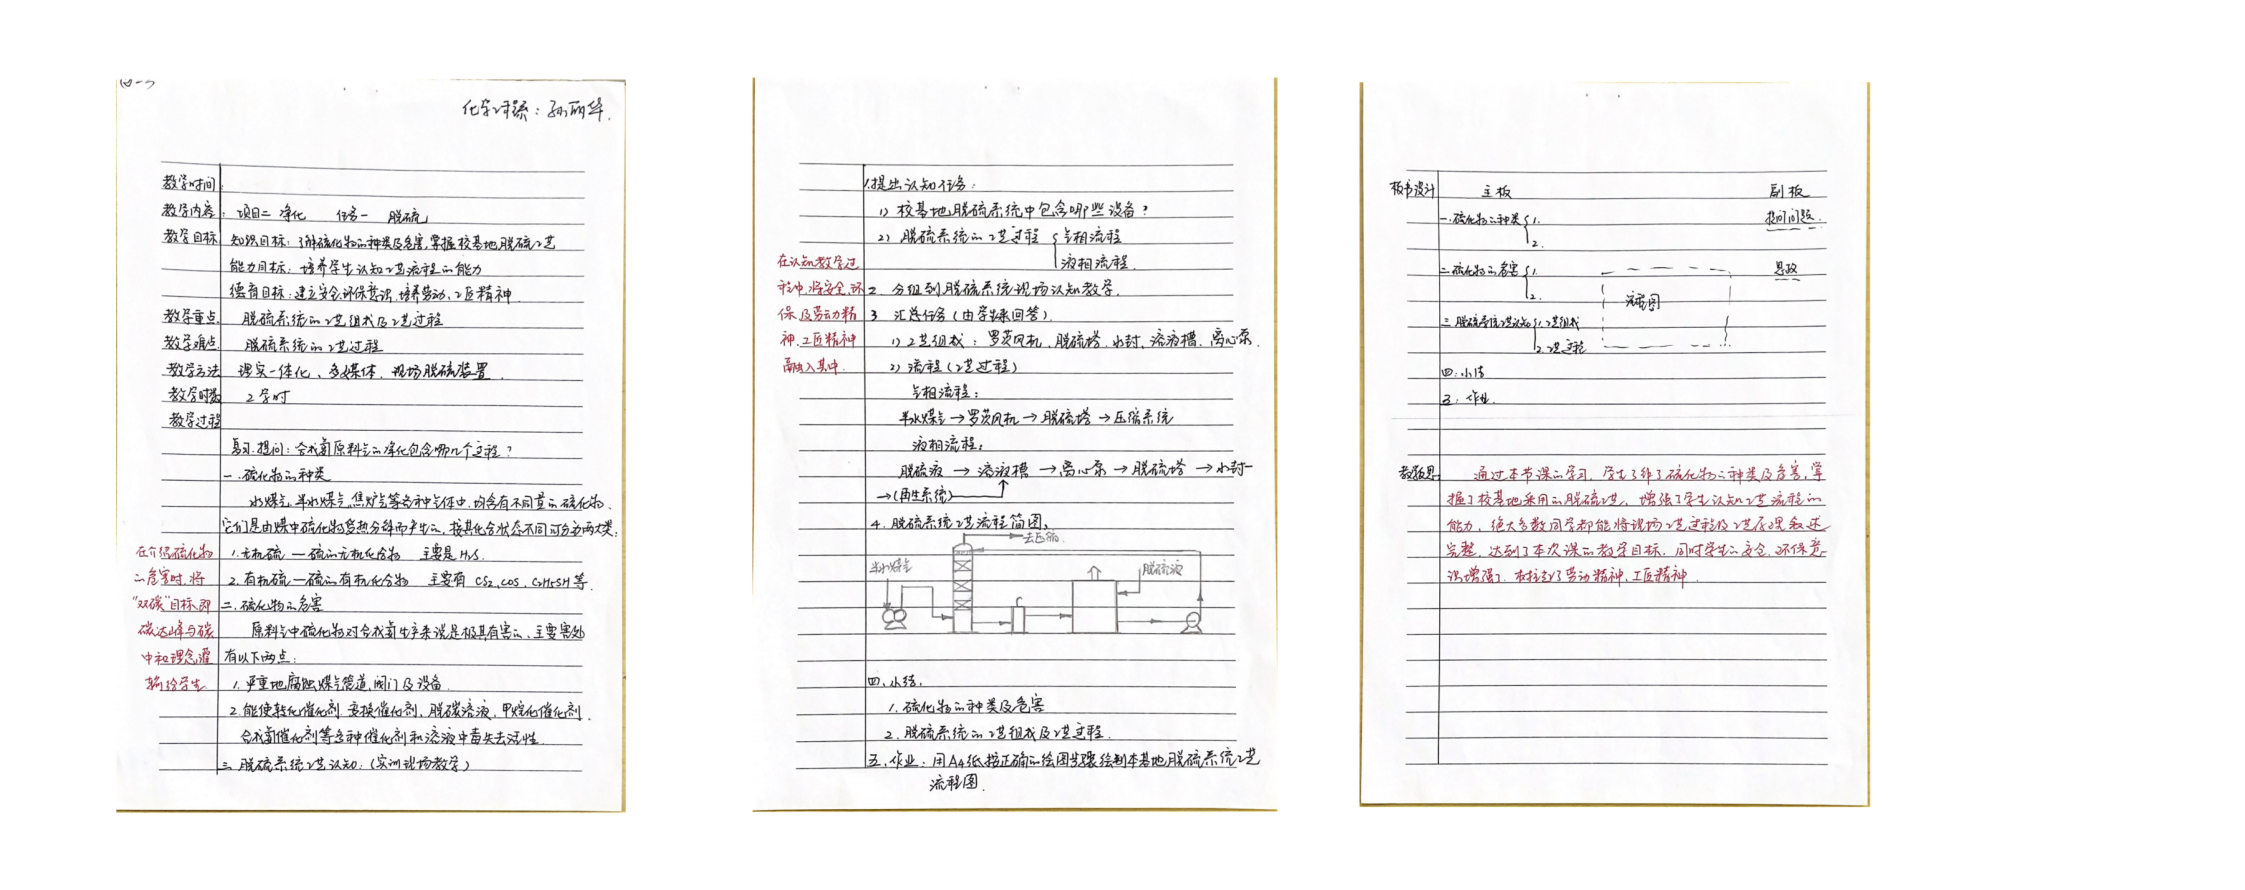 化学课题：孙丽华
教学时间：
教学内容：项目二 净化 任务一 脱硫
教学目标 知识目标：了解硫化物的种类及危害，掌握校基地脱硫工艺
能力目标：培养学生认知工艺流程的能力
德育目标：建立安全、环保意识，培养劳动、工匠精神
教学重点 脱硫系统的工艺组成及工艺过程
教学难点 脱硫系统的工艺过程
教学方法 理实一体化、多媒体、现场脱硫装置
教学时数 2学时
教学过程
复习提问：合成氨原料气的净化包含哪几个过程？
一.硫化物的种类
水煤气、半水煤气、焦炉气等各种气体中，均含有不同量的硫化物。
它们是由煤中硫化物受热分解而产生的，按其化合状态不同可分为两大类：
1.无机硫—硫的无机化合物 主要是H₂S.
2.有机硫—硫的有机化合物 主要有CS₂、COS、C₂H₅SH等.
二.硫化物的危害
原料气中硫化物对合成氨生产来说是极其有害的，主要害处
有以下两点：
1.严重地腐蚀煤气管道、阀门及设备
2.能使转化催化剂、变换催化剂、脱碳溶液、甲烷化催化剂、
合成氨催化剂等各种催化剂和溶液中毒失去活性
三.脱硫系统工艺认知：（实训现场教学）
在介绍硫化物
的危害时，将
“双碳”目标即
碳达峰与碳
中和理念灌
输给学生
1.提出认知任务：
1）校基地脱硫系统中包含哪些设备？
2）脱硫系统的工艺过程 气相流程
液相流程
2. 分组到脱硫系统现场认知教学.
3 汇总任务（由学生来回答）
1）工艺组成：罗茨风机、脱硫塔、水封、溶液槽、离心泵.
2）流程（工艺过程）
气相流程：
半水煤气→罗茨风机→脱硫塔→压缩系统
液相流程：
脱硫液→溶液槽→离心泵→脱硫塔→水封—
→（再生系统）
4. 脱硫系统工艺流程简图.
去压缩
半水煤气
脱硫液
四.小结.
1.硫化物的种类及危害
2.脱硫系统的工艺组成及工艺过程.
五.作业：用A4纸按正确的绘图步骤绘制本基地脱硫系统工艺
流程图.
在认知教学过
程中，将安全、环
保及劳动精
神、工匠精神
融入其中.
板书设计 主板 副板
一.硫化物的种类 1.
2.
提问问题.
二.硫化物的危害 1.
2.
思政
流程图
三.脱硫系统工艺认知 1.工艺组成
2.工艺过程
四.小结
五.作业.
教学反思
通过本节课的学习，学生了解了硫化物的种类及危害，掌
握了校基地采用的脱硫工艺，增强了学生认知工艺流程的
能力，绝大多数同学都能将现场工艺过程及工艺原理叙述
完整，达到了本次课的教学目标，同时学生的安全、环保意
识增强了，树立了劳动精神、工匠精神.